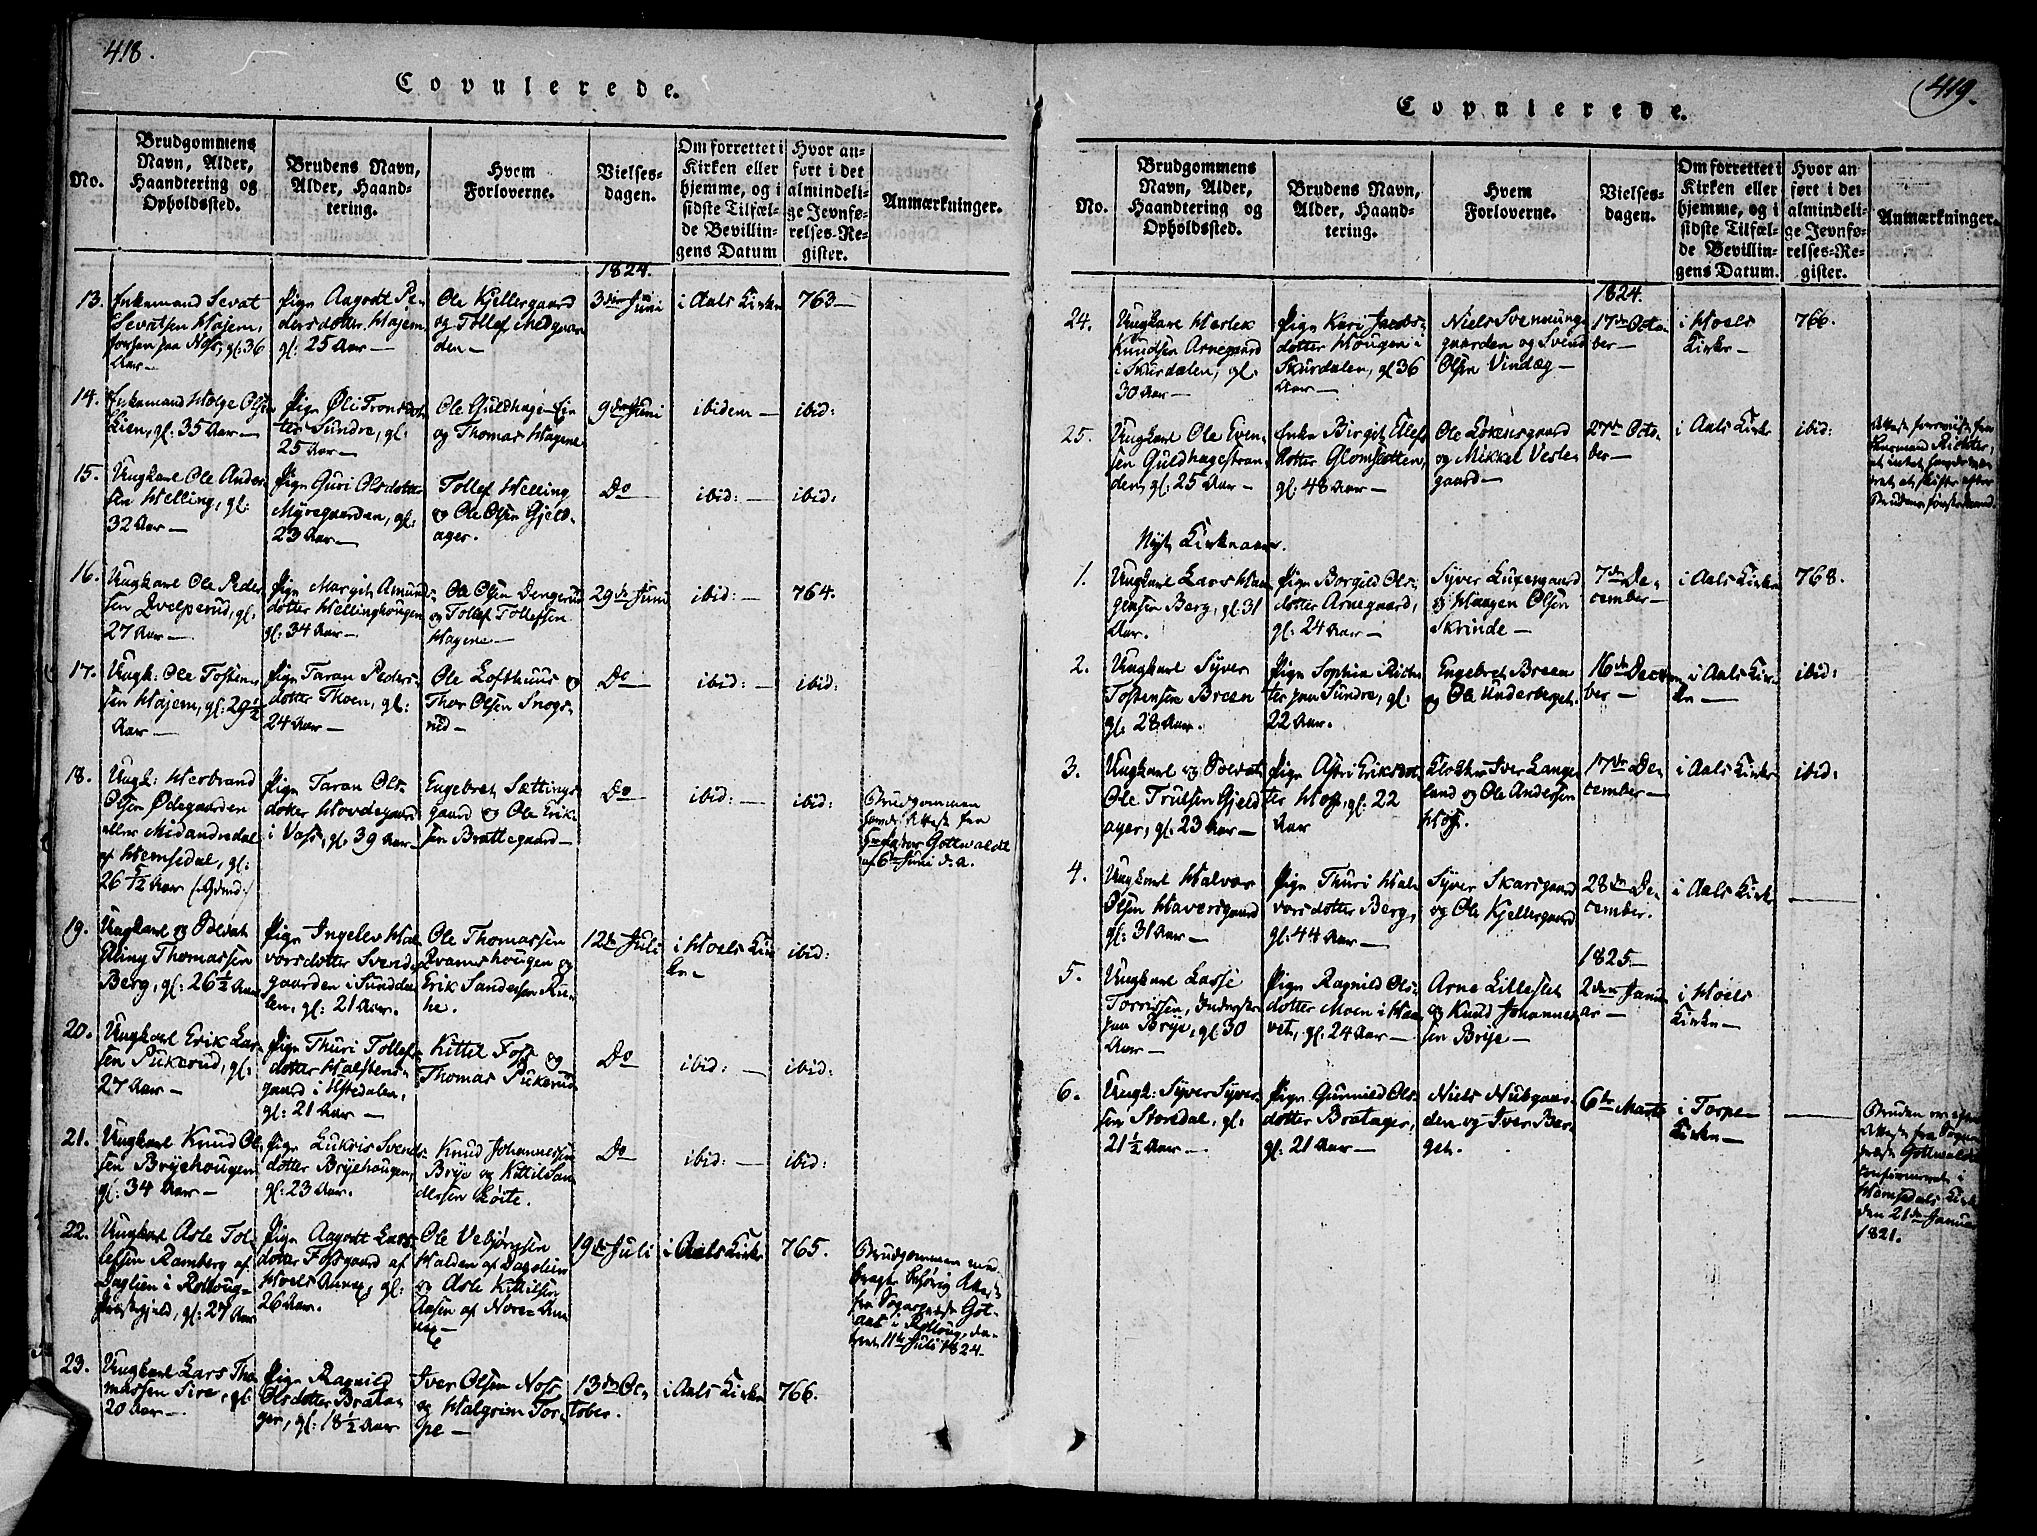 418.
Copulerede.
No.
Brudgommens
Navn, Alder,
Haandtering og
Opholdssted.
Brudens Navn,
Alder, Haand-
tering.
Hvem
Forloverne.
Vielses-
dagen.
Om forrettet i
Kirken eller
hjemme, og i
sidste Tilfæl-
de Bevillin-
gens Datum
Hvor an-
ført i det
almindeli-
ge Jevnfø-
relses-Re-
gister.
Anmærkninger.
1824.
13.
Enkemand Sevat
Sevatsen Hajem,
gl: 36
Aar—
Pige Aagodt Pe-
dersdotter Hajem,
gl: 25 Aar—
Ole Kjellergaard
og Tollef Medgaar
den—
3die Juni
i Aals Kirke
763—
14.
Enkemand Holge Olsen
Lien, gl: 35 Aar—
Pige Øli Tronsdot
ter Sundre, gl:
25 Aar—
Ole Guldhagi-Eie
og Thomas Hagene
9de Juni
ibidem—
ibid:
15.
Ungkarl Ole Ander
sen Helling, gl:
32 Aar—
Pige Guri Olsdotter
Myregaarden, gl:
23 Aar—
Tollef Helling
og Ole Olsen Gjeld-
ager.
Do
ibid:—
ibid:
16.
Ungkarl Ole Peder
sen Qvelperud, gl:
27 Aar—
Pige Margit Amunds
dotter Hellinghougen
gl: 34 Aar—
Ole Olsen Dengerud
og Tollef Tollefsen
Hagene—
29de Juni
ibid:—
764.
17.
Ungk: Ole Tostens
sen Hajem, gl: 29½
Aar—
Pige Taran Peders-
dotter Thoen, gl:
24 Aar—
Ole Lofthuus og
Thor Olsen Snogs-
rud—
Do
ibid:—
ibid:
18.
Ungk: Herbrand
Olsen Ødegaarden
eller Midandredal
af Hemsedal, gl:
26 5/12 Aar
Pige Taran Ols-
dotter Hovdegaard
i Vats, gl: 39 Aar—
Engebret Sætting-
gaard og Ole Erik-
sen Brattegaard—
Do
ibid:—
ibid:
Brudgommen
havde Attest fra
Gottwaldt
af 6te Juni d.a.
19.
Ungkarl og Odelbat
Thomassen
Berg, gl: 26½ Aar
Pige Ingelev Hal
vorsdotter Svends-
gaarden i Sundda
len, gl: 21 Aar.
Ole Thomassen
Kvamshougen og
Erik Sandersen
12te Juli
i Hoels Kir
ke—
ibid:
20.
Ungkarl Erik Lar
sen Pukerud, gl:
27 Aar—
Pige Thuri Tollef-
dotter Halstens-
gaard i Ustedalen,
gl: 21 Aar—
Kittil Foss og
Thomas Pukerud
Do
ibid:—
ibid:
21.
Ungkarl Knud Ol
sen Bryehougen
gl: 34 Aar—
Pige Lukris Svends-
dotter Bryehougen,
gl: 23 Aar.
Knud Johannessen
Brye og Kittil San
dersen Løite.
Do
ibid:—
ibid:
22.
Ungkarl Asle Tol-
lefsen Ramberg af
Daglien i Rolloug-
Præstegjeld, gl: 27 Aar
Pige Aagodt Lars
dotter Fossgaard af
Hoels Annex, gl:
26 Aar.
Ole Vebjørnsen
Halden af Dagalien
og Asle Kittilsen
Aasen af Nore An
nex—
19de Juli
i Aals Kirke
765.
Brudgommen med-
bragte behørig Attest
fra Sognepræst
i Rolloug, da-
teret 11te Juli 1824.
23.
Ungkarl Lars Tho
massen Sire, gl:
20 Aar—
Pige Ragnild
Olsdotter Brata-
ger, gl: 18½ Aar
Iver Olsen Noss
og Halgrim Tor-
pe—
13de Oc-
tober.
i Aals Kirke
766.
419.
Copulerede.
No.
Brudgommens
Navn, Alder,
Haandtering og
Opholdssted.
Brudens Navn,
Alder, Haand-
tering.
Hvem
Forloverne.
Vielses-
dagen.
Om forrettet i
Kirken eller
hjemme, og i
sidste Tilfæl-
de Bevillin-
gens Datum.
Hvor an
ført i det
almindeli-
ge Jevnfø-
relses-Re-
gister.
Anmærkninger.
1824.
24.
Ungkarl Herlek
Knudsen Arnegaard
i Skurdalen, gl:
30 Aar—
Pige Kari Jacobs-
dotter Hougen i
Skurdalen, gl 36
Aar—
Niels Svennung-
gaarden og Svend
Olsen Vindæg—
17de Octo
ber—
i Hoels
Kirke—
766.
25.
Ungkarl Ole Even-
sen Guldhagestran-
den, gl: 25 Aar—
Enke Birgit Ellefs
dotter Glomsetten,
gl: 48 Aar—
Ole Løkensgaard
og Mikkel Vesle-
gaard—
27de Octo-
ber—
i Aals Kirke
ibid:
Attest foreviist fra
Richter,
at intet
at skifte efter
Brudens første Mand.
Nyt Kirkeaar.
1.
Ungkarl Lars Haa
gensen Berg, gl: 31
Aar.
Pige Borgild Ols-
dotter Arnegaard,
gl: 24 Aar—
Syver Luxengaard
og Haagen Olsen
Skrinde—
7de De-
cember—
i Aals Kirke
768.
2.
Ungkarl Syver
Tostensen Breen
gl: 28 Aar.
Pige Sophia Rich-
ter paa Sundre, gl:
22 Aar.
Engebret Breen
og Ole Underberget.
16de Decem
ber—
i Aals Kir-
ke—
ibid:
3.
Ungkarl og Odelbat
Ole Trulsen Gjeld
ager, gl: 23 Aar—
Pige Astri Eriksdot
ter Hoff, gl: 22
Aar
Klokker Iver Lange
land og Ole Andersen
Hoff.
17de De-
cember—
i Aals Kirke
ibid:
4.
Ungkarl Halvor
Olsen Haversgaard
gl: 31 Aar—
Pige Thuri Hal-
vorsdotter Berg,
gl: 44 Aar—
Syver Skarsgaard
og Ole Kjellergaard
28de De-
cember.
i Aals Kirke
1825—
5.
Ungkarl Lasse
Torrissen, Inderste
paa Brye, gl 30
Aar—
Pige Ragnild Ols-
dotter Moen i Haa
vet, gl: 24 Aar—
Arne Lilleslet
og Knud Johannes-
sen Brye—
2den Janu
ar—
i Hoels
Kirke—
6.
Ungk: Syver Syver-
sen Storedal, gl:
21½ Aar—
Pige Gunnild Ols-
dotter Bratager,
gl: 21 Aar—
Niels Nubgaar-
den og Iver Ber-
get.
6te Marts
i Torpe-
Kirke—
Bruden er efter
Attest fra Sogne
præst Gottwaldt
confirmeret i
Hemsedals Kirke
den 21de Januar
1821.